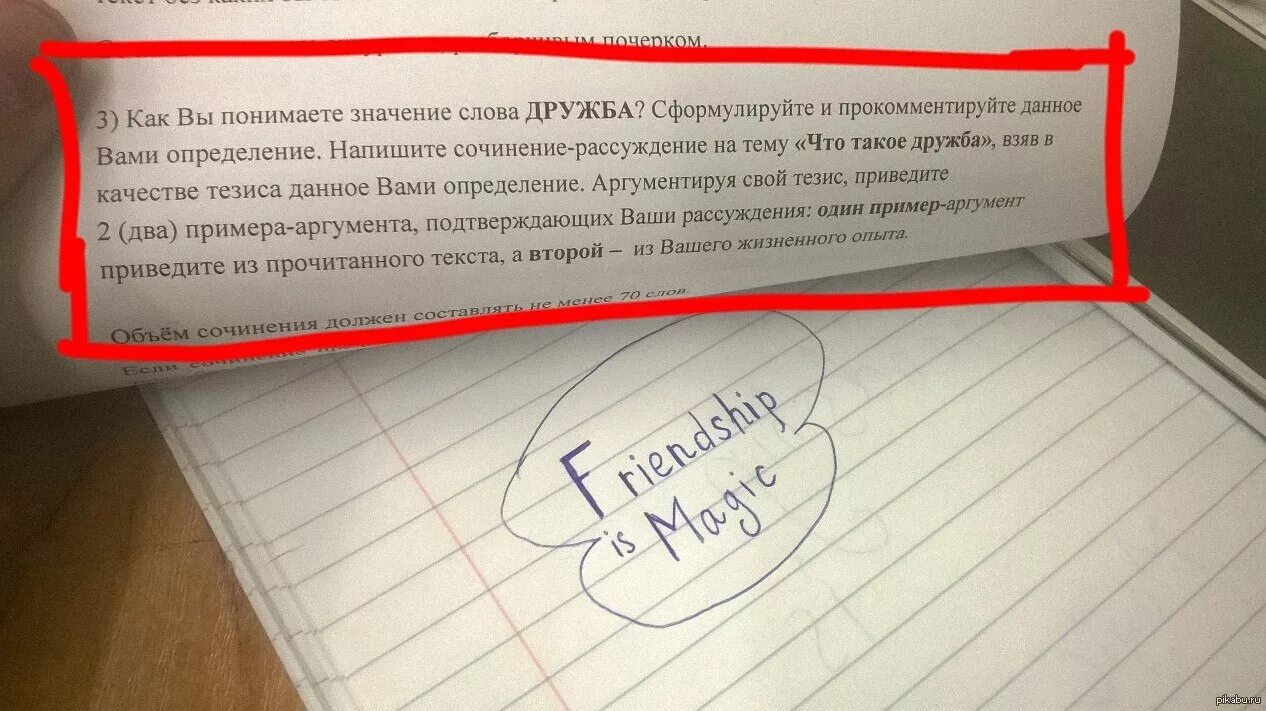 почерком.
3) Как Вы понимаете значение слова ДРУЖБА? Сформулируйте и прокомментируйте данное
Вами определение. Напишите сочинение-рассуждение на тему «Что такое дружба», взяв в
качестве тезиса данное Вами определение. Аргументируя свой тезис, приведите
2 (два) примера-аргумента, подтверждающих Ваши рассуждения: один пример-аргумент
приведите из прочитанного текста, а второй – из Вашего жизненного опыта.
Объём сочинения должен составлять не менее 70 слов.
Если сочинение
Friendship
is Magic
pikabu.ru